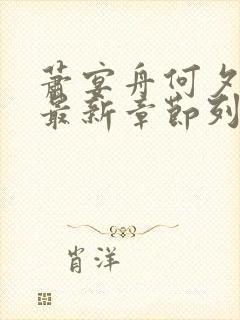 萧宴舟何夕
最新章节列
肖洋